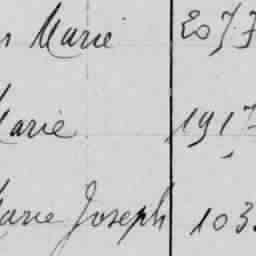 s Marie 2077
Marie 1917
Marie Joseph 103